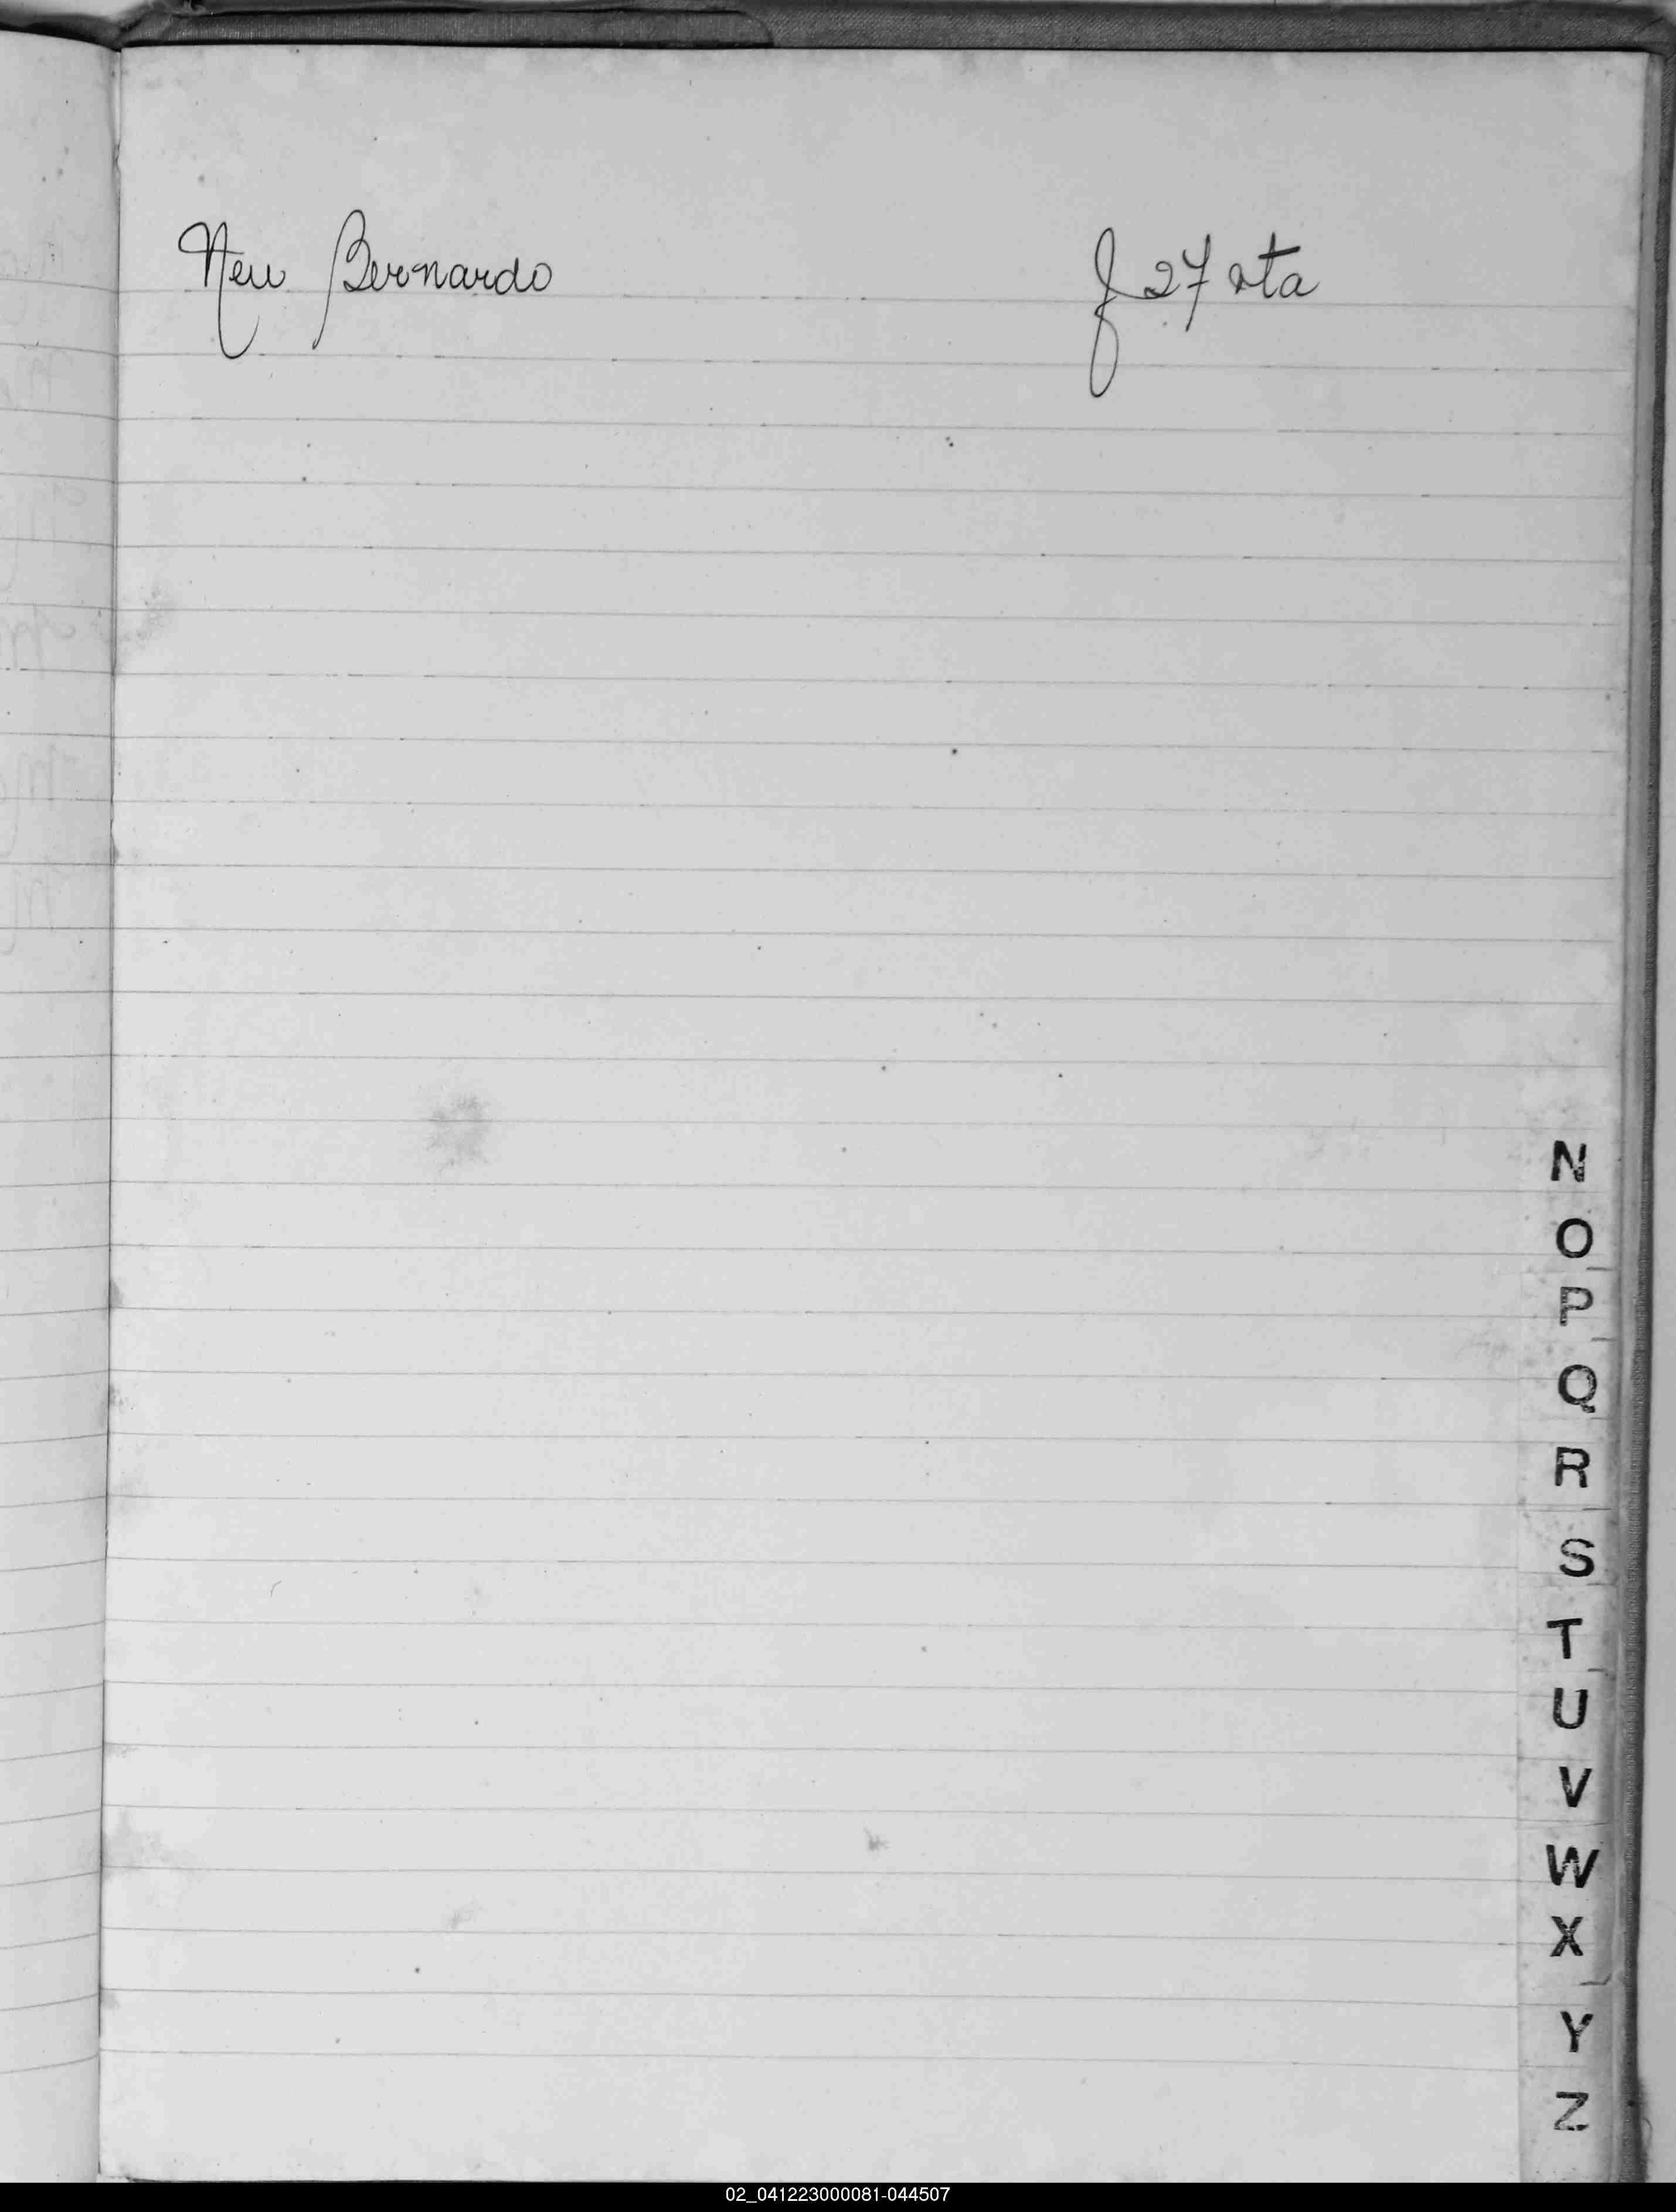 Neu Bernardo f 27 vta
N
O
P
Q
R
S
T
U
V
W
X
Y
Z
02_041223000081-044507